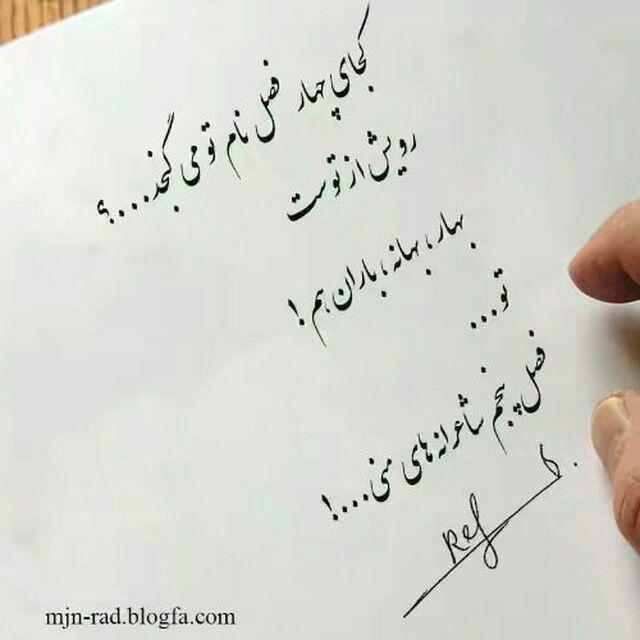 کجای چهار فصل نام تو می گنجد....؟
رویش از توست
بهار، بهانه، باران هم!
تو...
فصل پنجم شاعرانه های منی....!
Ref
mjn-rad.blogfa.com